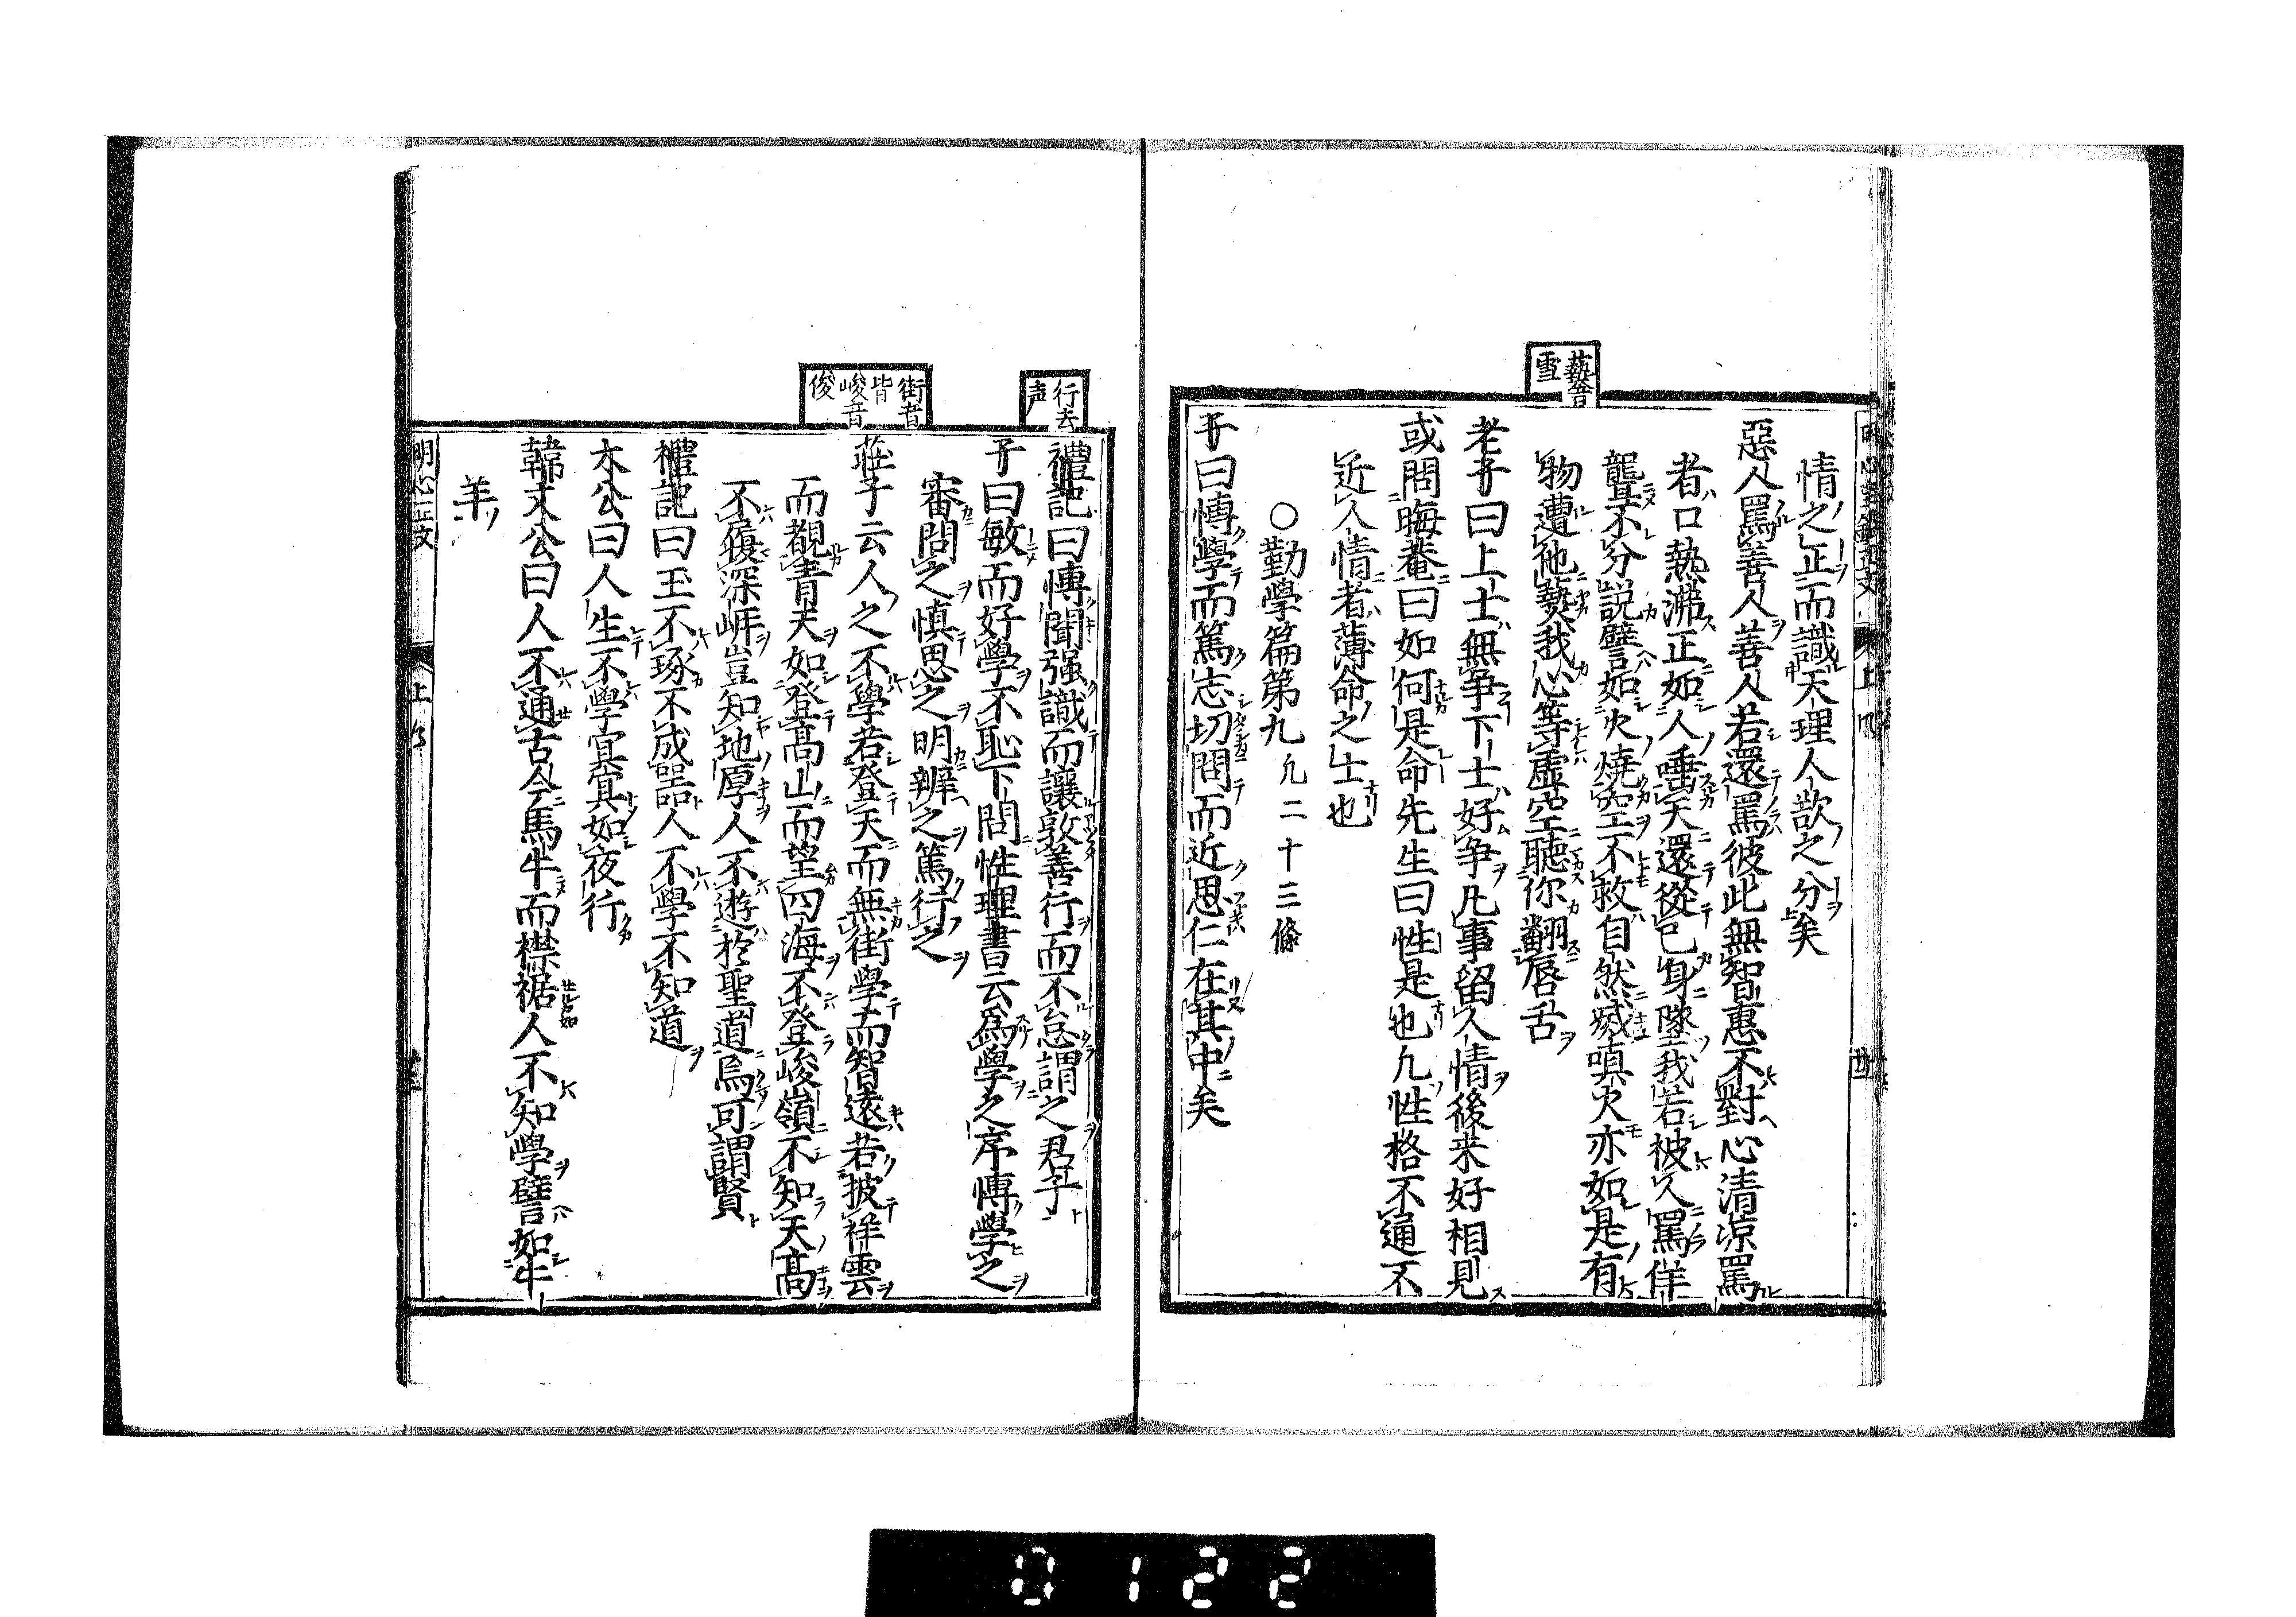 藝音
雪
情之正而識天理人欲之分矣
惡人罵善人善人若還罵彼此無智惠不對心清凉罵
者口熱沸正如人唾天還從己身墜我若被人罵佯
聾不分説譬如火燒空不救自然滅嗔火亦如是有
物遭他爇我心等虛空聽你翻唇舌
老子曰上士無爭下士好爭凡事留人情後来好相見
或問晦菴曰如何是命先生曰性是也凢性格不通不
近人情者薄命之士也
○勤學篇第九凢二十三條
子曰博學而篤志切問而近思仁在其中矣
行去
声
街音
皆
峻音
俊
禮記曰博聞强識而讓敦善行而不怠謂之君子
子曰敏而好學不恥下問性理書云爲學之序博學之
審問之慎思之明辨之篤行之
莊子云人之不學若登天而無術學而智遠若披祥雲
而覩青天如登髙山而望四海不登峻嶺不知天髙
不履深崖豈知地厚人不遊於聖道焉可謂賢
禮記曰玉不琢不成器人不學不知道
太公曰人生不學冥冥如夜行
韓文公曰人不通古今馬牛而襟裾人不知學譬如牛
羊
明心正文
上
0122